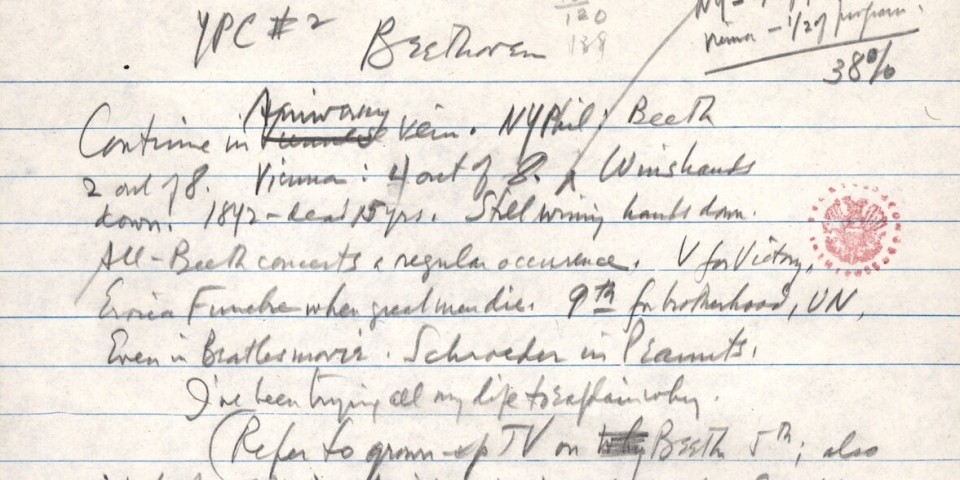 YPC #2
Beethoven
120
NY-
- 1/2 of program.
38%
Continue in Anniversary vein. NYPhil: Beeth
2 out of 8. Vienna: 4 out of 8. Wins hands
down! 1842-dead 15 yrs. Still wining hands down.
All-Beeth concerts a regular occurence. V for Victory,
Eroica Funebre when great men die. 9th for brotherhood, UN,
Even in Beatles movie. Schroeder in Peanuts.
I've been trying all my life to explain why.
(Refer to grown-up TV on Beeth 5th; also